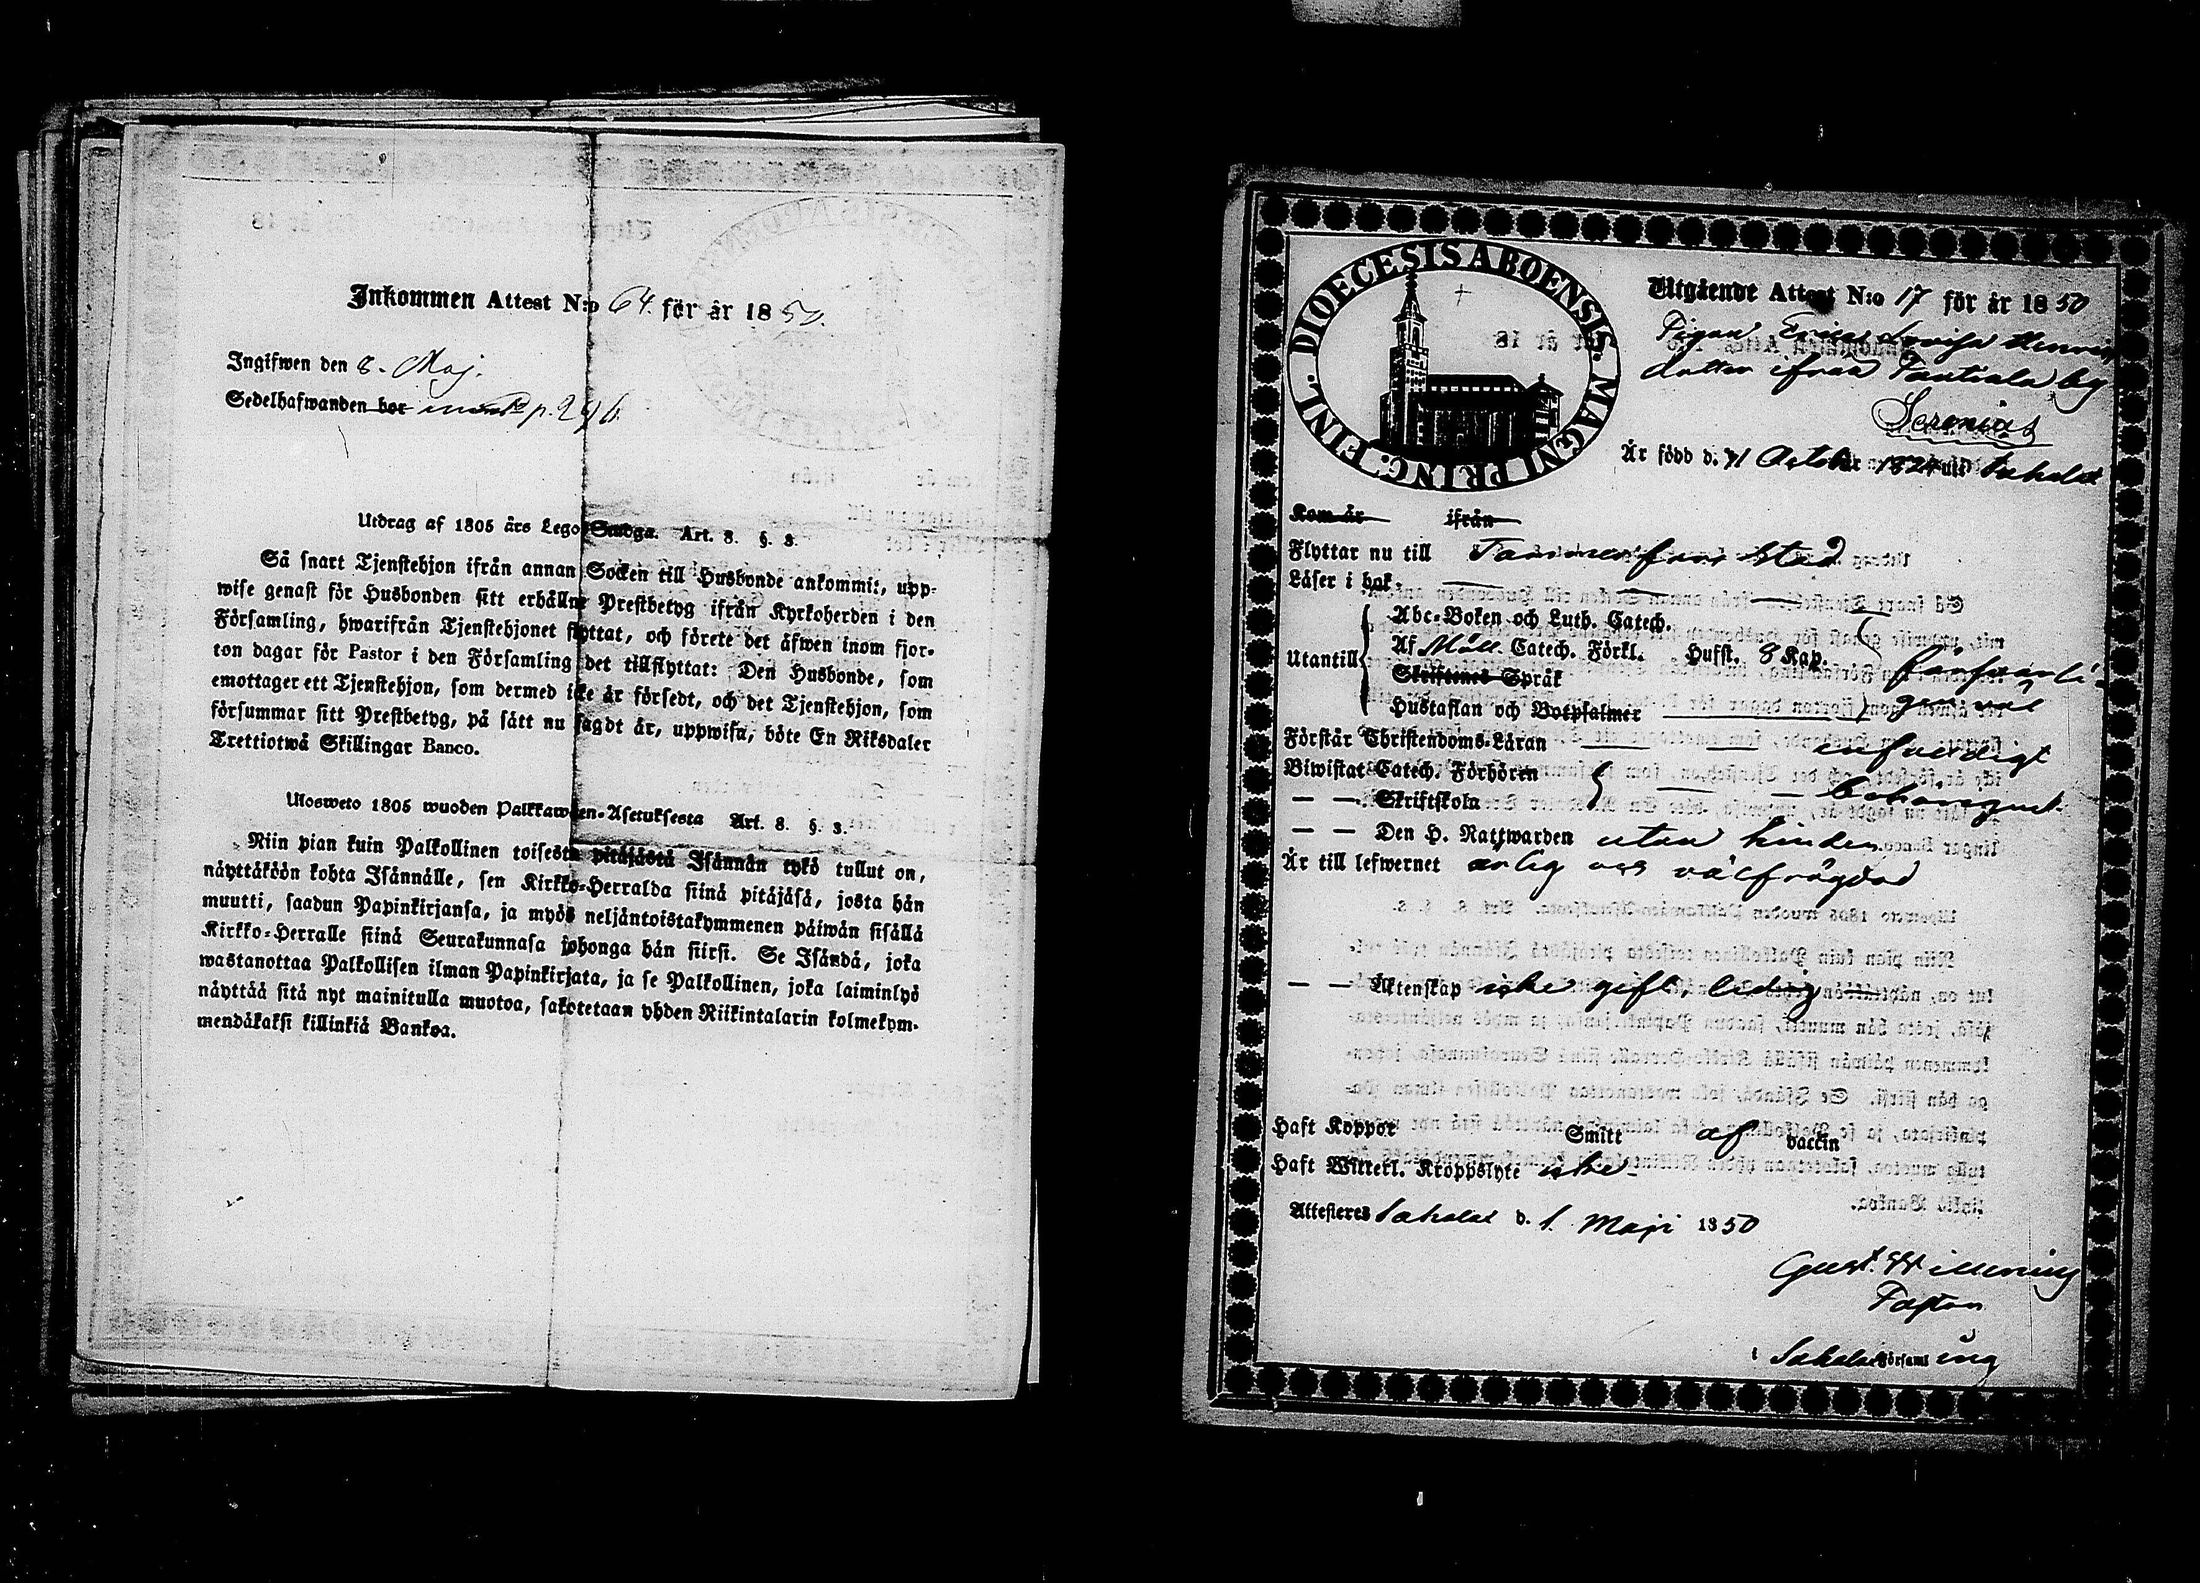 Inkommen Attest N:o 64. för år 1850.
Ingifwen den 8. Maj.
Sedelhafwanden bor p. 296
Utdrag af 1805 års Lego-Stadga. Art. 8. §. 3.
Så snart Tjenstehjon ifrån annan Socken till Husbonde ankommit, upp-
wise genast för Husbonden sitt erhållne Prestbetyg ifrån Kyrkoherden i den
Församling, hwarifrån Tjenstehjonet flyttat, och förete det äfwen inom fjor-
ton dagar för Pastor i den Församling det tillflyttat: Den Husbonde, som
emottager ett Tjenstehjon, som dermed icke är försedt, och det Tjenstehjon, som
försummar sitt Prestbetyg, på sätt nu sagdt är, uppwisa, böte En Riksdaler
Trettiotwå Skillingar Banco.
Ulosweto 1805 wuoden Palkkawäen-Asetuksesta Art. 8. §. 3.
Niin pian kuin Palkollinen toisesta pitäjästä Isännän tykö tullut on,
näyttäköön kohta Isännälle, sen Kirkko-Herralda siinä pitäjäsä, josta hän
muutti, saadun Papinkirjansa, ja myös neljäntoistakymmenen päiwän sisällä
Kirkko-Herralle siinä Seurakunnasa johonga hän siirsi. Se Isändä, joka
wastanottaa Palkollisen ilman Papinkirjata, ja se Palkollinen, joka laiminlyö
näyttää sitä nyt mainitulla muotoa, sakotetaan yhden Riikintalarin kolmekym-
mendäkaksi killinkiä Bankoa.
DIOECESIS ABOENSIS. MAGNI PRINC. FINL.
Utgående Attest N:o 17 för år 1850
Pigan Erica Lovisa Henrics
dotter ifrån by
Är född d. 11 October 1824 uti Sahalax
Kom år ifrån
Flyttar nu till Tammerfors Stad
Läser i bok.
Abc-Boken och Luth. Catech.
Utantill Af Möll. Catech. Förkl. Hufst. 8 Kap.
Skriftenes Språk
Hustaflan och Botpsalmer
Förstår Christendoms-Läran enfaldigt
Biwistat Catech. Förhören
— — Skriftskola behörigen
— — Den H. Nattwarden utan hinder
Är till lefwernet ärlig och välfrägdad
— — Äktenskap icke gift, ledig
Haft Koppor Smitt af vaccin
Haft Witterl. Kroppslyte icke
Attesteres Sahalax d. 1. Maji 1850
Gust.
Pastor
i Sahalax Församling